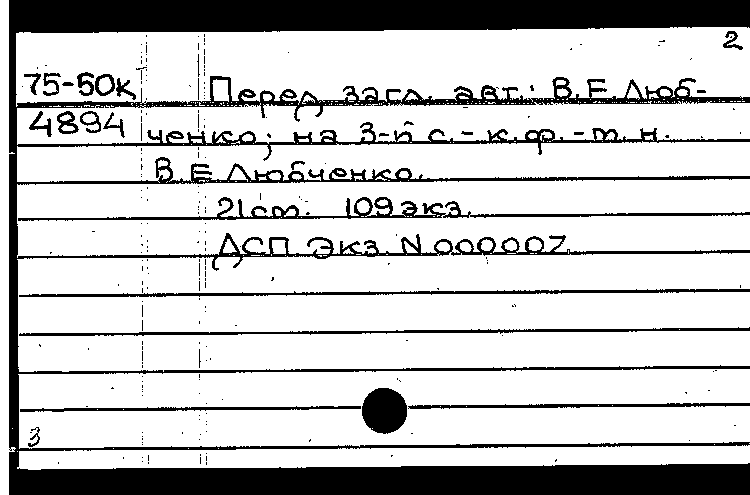 2
75-50к Перед загл. авт.: В.Е.Люб-
4894 ченко; на 3-й с.- к.ф.-м.н.
В.Е Любченко.
21cm. 109 экз.
ДСП. Экз. N 000007
3